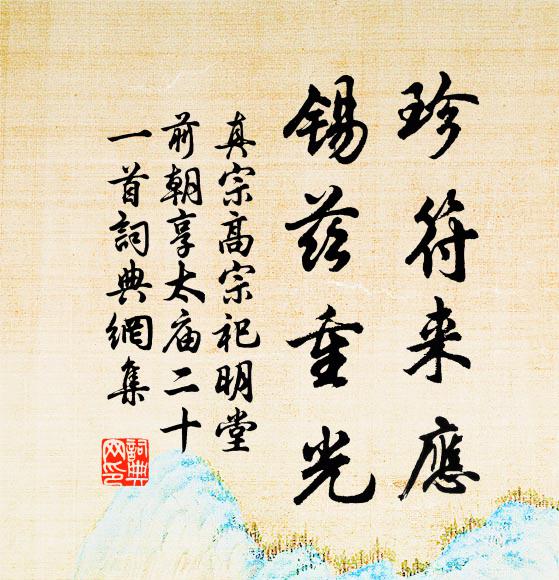 珍符来應
锡茲重光
真宗高宗祀明堂
前朝享太庙二十
一首詞典網集
詞典
网印